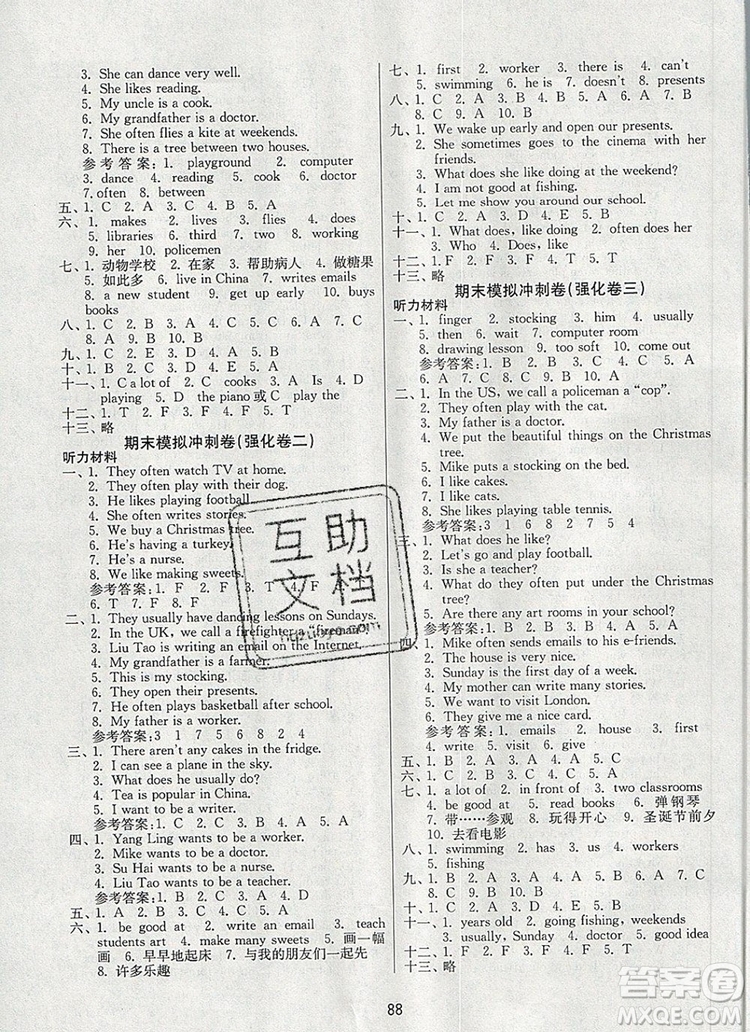 3. She can dance very well.
4. She likes reading.
5. My uncle is a cook.
6. My grandfather is a doctor.
7. She often flies a kite at weekends.
8. There is a tree between two houses.
参考答案:1. playground 2. computer
3. dance 4. reading 5. cook 6. doctor
7. often 8. between
五、1. C 2. A 3. C 4. A 5. B
六、1. makes 2. lives 3. flies 4. does
5. libraries 6. third 7. two 8. working
9. her 10. policemen
七、1. 动物学校 2. 在家 3. 帮助病人 4. 做糖果
5. 如此多 6. live in China 7. writes emails
8. a new student 9. get up early 10. buys
books
八、1. C 2. B 3. A 4. C 5. C 6. B 7. C
8. A 9. B 10. B
九、1. C 2. D 3. E 4. A 5. B
十、1. B 2. D 3. E 4. A 5. C
十一、1. C a lot of 2. C cooks 3. A Is 4. D
playing 5. D the piano 或 C play the
十二、1. T 2. F 3. F 4. T 5. F
十三、略
期末模拟冲刺卷(强化卷二)
听力材料
一、1. They often watch TV at home.
2. They often play with their dog.
3. He likes playing football.
4. She often writes emails.
5. We buy a Christmas tree.
6. He's having a turkey.
7. He's a nurse.
8. We like making sweets.
参考答案:1. F 2. F 3. T 4. F 5. F
6. T 7. F 8. F
二、1. They usually have dancing lessons on Sundays.
2. In the UK, we call a firefighter a "fireman".
3. Liu Tao is writing an email on the Internet.
4. My grandfather is a farmer.
5. This is my stocking.
6. They often open their presents.
7. He often plays basketball after school.
8. My father is a worker.
参考答案:3 1 7 5 6 8 2 4
三、1. There aren't any cakes in the fridge.
2. I can see a plane in the sky.
3. What does he usually do?
4. Tea is popular in China.
5. I want to be a writer.
参考答案:1. C 2. C 3. B 4. A 5. A
四、1. Yang Ling wants to be a worker.
2. Mike wants to be a doctor.
3. Su Hai wants to be a nurse.
4. Liu Tao wants to be a teacher.
参考答案:1. C 2. B 3. A 4. D
五、1. A 2. B 3. D 4. C 5. A
六、1. be good at 2. write an email 3. teach
students art 4. make many sweets 5. 画一幅
画 6. 早早地起床 7. 与我的朋友们一起先
8. 许多乐趣
七、1. first 2. worker 3. there is 4. can't
5. swimming 6. he is 7. doesn't 8. presents
八、1. C 2. A 3. B 4. C 5. A 6. A 7. B
8. C 9. A 10. B
九、1. We wake up early and open our presents.
2. She sometimes goes to the cinema with her
friends.
3. What does she like doing at the weekend?
4. I am not good at fishing.
5. Let me show you around our school.
十、1. C 2. A 3. D 4. E 5. B
十一、1. What does, like doing 2. often does her
3. Who 4. Does, like
十二、1. F 2. F 3. T 4. T 5. F
十三、略
期末模拟冲刺卷(强化卷三)
听力材料
一、1. finger 2. stocking 3. him 4. usually
5. then 6. wait 7. computer room
8. drawing lesson 9. too soft 10. come out
参考答案:1. B 2. B 3. C 4. A 5. C
6. A 7. C 8. C 9. B 10. A
二、1. In the US, we call a policeman a "cop".
2. They often play with the cat.
3. My father is a doctor.
4. We put the beautiful things on the Christmas
tree.
5. Mike puts a stocking on the bed.
6. I like cakes.
7. They sometimes go to the park.
8. She likes playing table tennis.
参考答案:3 1 6 8 2 7 5 4
三、1. What does he like?
2. Let's go and play football.
3. Is she a teacher?
4. What do they often put under the Christmas
tree?
5. Are there any art rooms in your school?
参考答案:1. C 2. B 3. A 4. C 5. B
四、1. Mike often sends emails to his e-friends.
2. The house is very nice.
3. Sunday is the first day of a week.
4. My mother can write many stories.
5. We want to visit London.
6. They give me a nice card.
参考答案:1. emails 2. house 3. first
4. write 5. visit 6. give
五、1. B 2. A 3. A 4. B 5. C
六、1. C 2. B 3. B 4. A 5. A
七、1. a lot of 2. in front of 3. two classrooms
4. be good at 5. read books 6. 弹钢琴
7. 带……参观 8. 玩得开心 9. 圣诞节前夕
10. 去看电影
八、1. swimming 2. has 3. us 4. workers
5. fishing
九、1. B 2. A 3. C 4. A 5. C 6. A 7. B
8. C 9. B 10. B
十、1. C 2. E 3. D 4. B 5. A
十一、1. years old 2. going fishing, weekends
3. usually, Sunday 4. doctor 5. good idea
十二、1. F 2. F 3. F 4. T 5. T
十三、略
88
互助
文档
答案卷
MXQE.COM